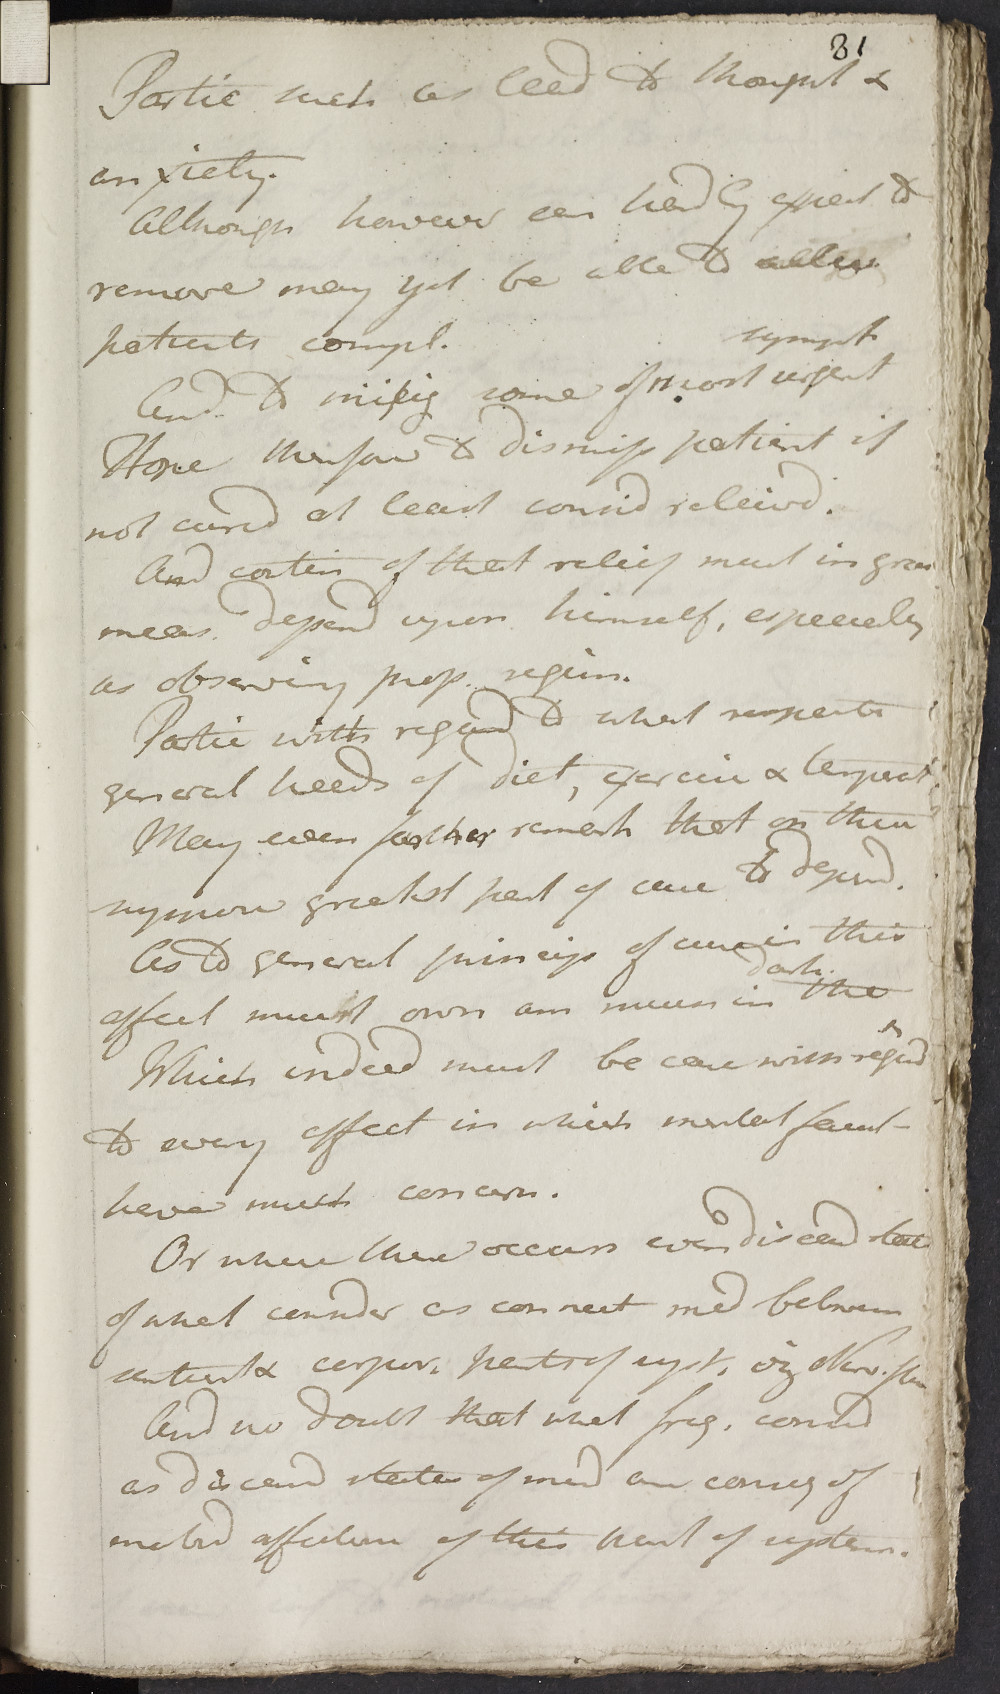 81
Partic such as lead to thought &
anxiety.
Although however can hardly expect to
remove may yet be able to allev.
patients compl.
sympt
And to mitig some of most urgent
Hope therefore to dismiss patient if
not cured at least consid releivd.
And contin of that relief must in great
meas. depend upon himself, especially
as observing prop. regim.
Partic with regard to what respects
general heads of diet, exercise & temperat
May even farther remark that on these
suppose greatest part of cure to depend.
As to general princip of cure in this
dark.
affect must own am much in the
Which indeed must be case with regard
to every affect in which mental facult
have much concern.
Or where there occurs even diseasd state
of what consider as connect med between
sentient & corpor. parts of syst. viz Nerv.
And no doubt that what freq. consid
as diseasd states of mind are conseq of
morbid affections of this part of system.